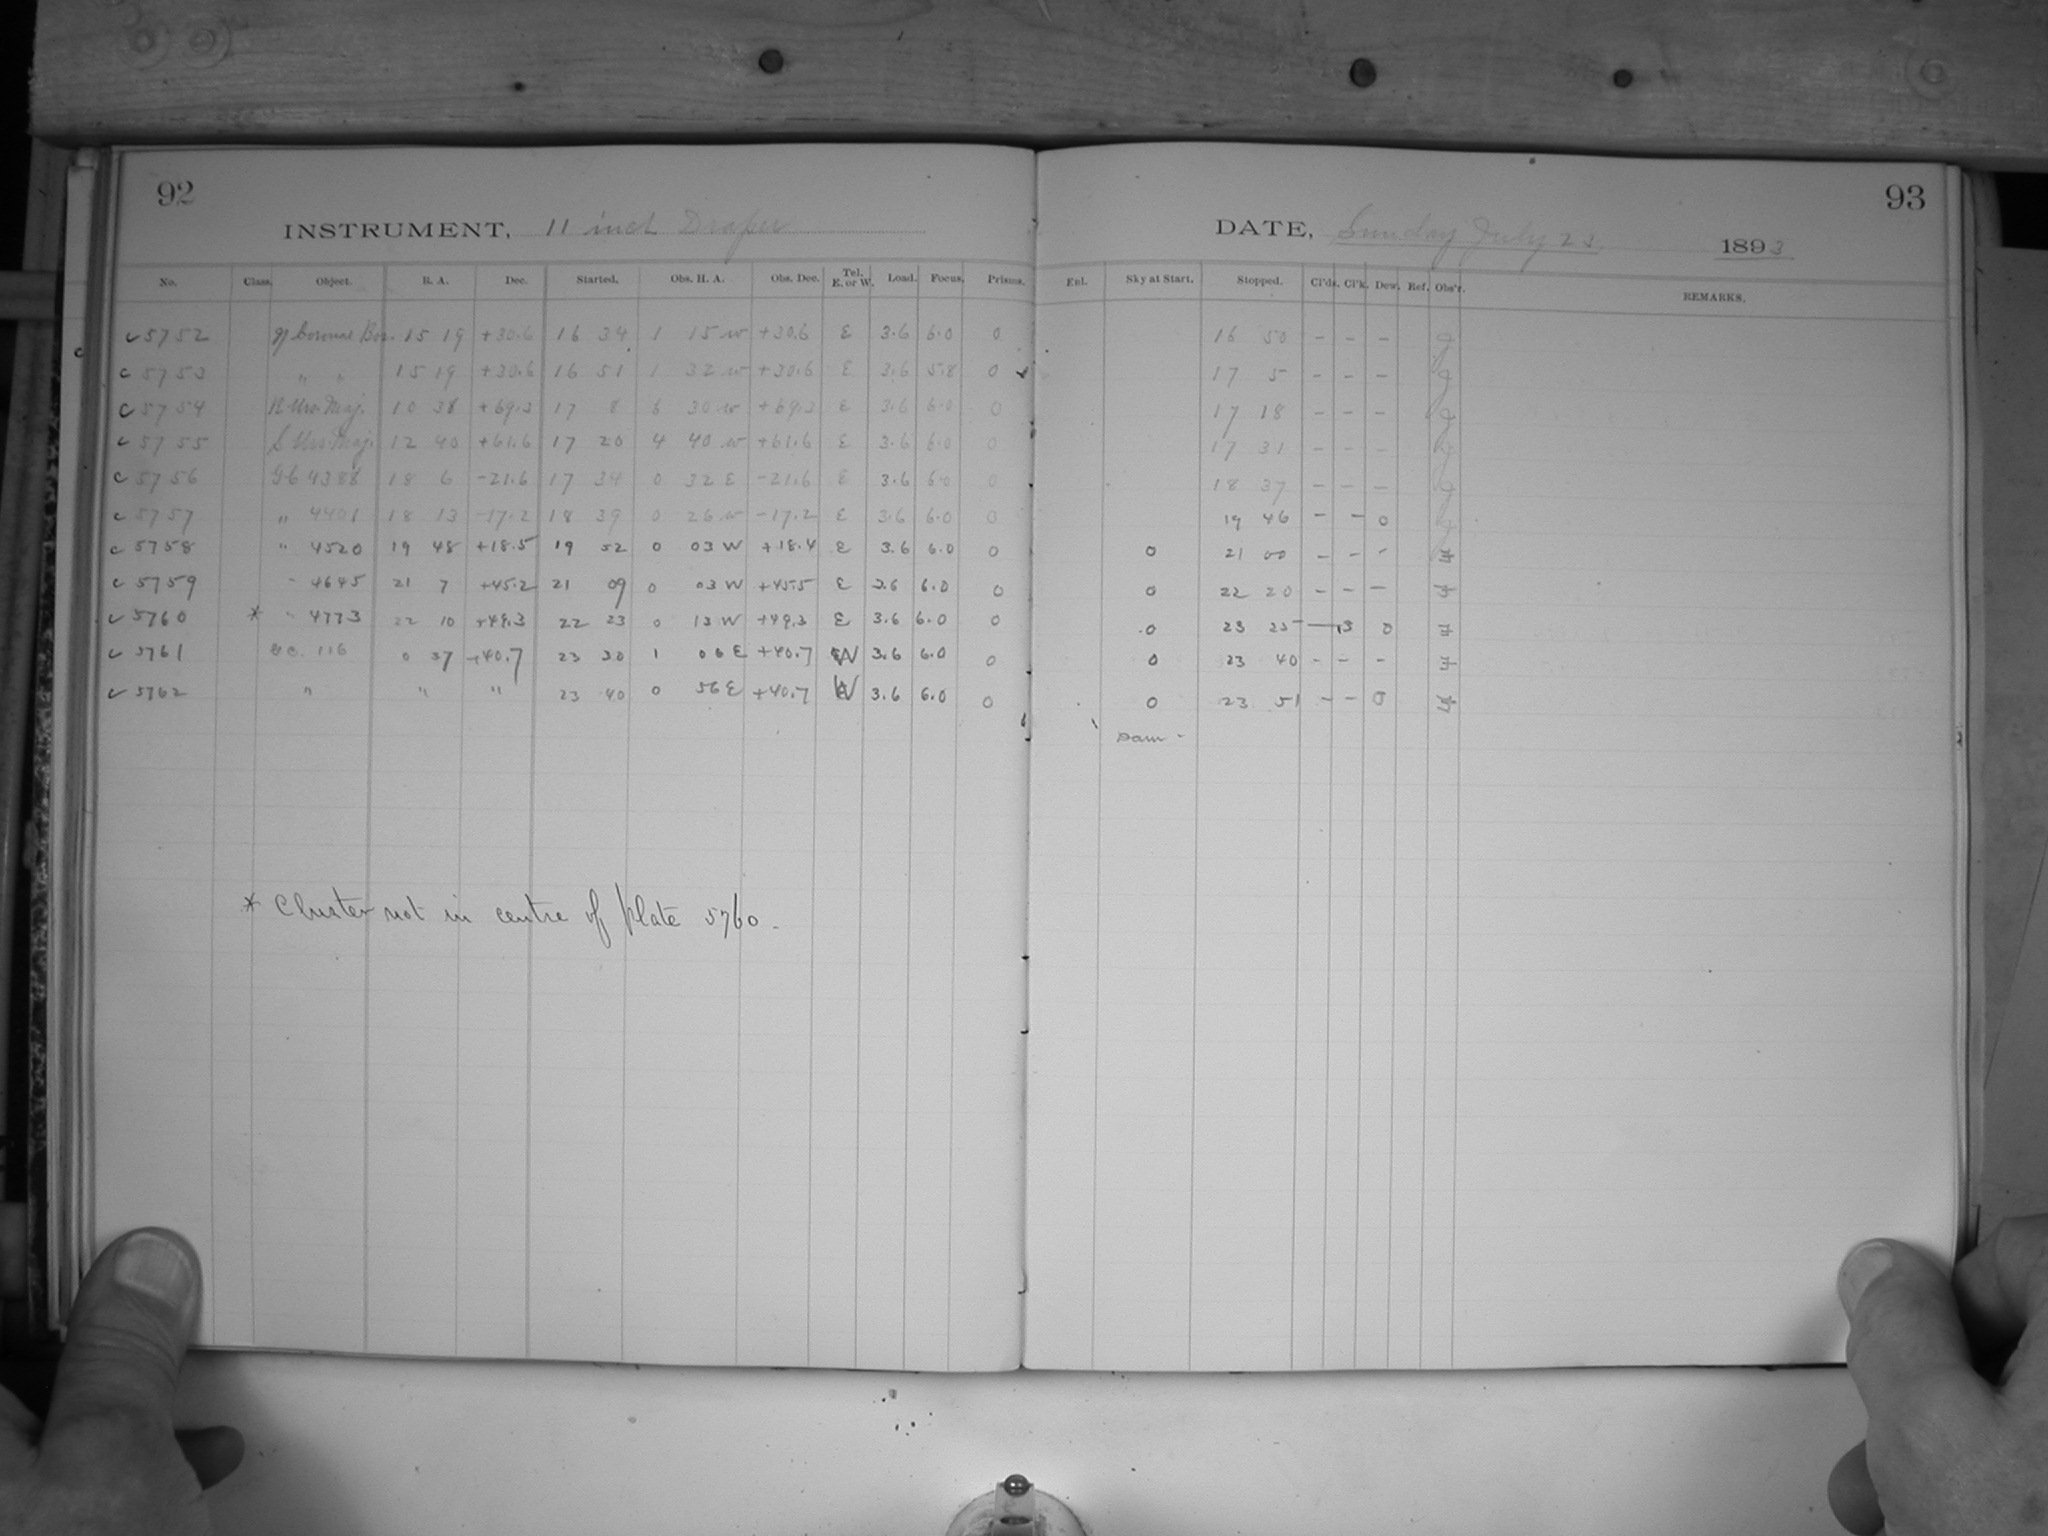 92
INSTRUMENT, 11 inch Draper
No. Class. Object. R. A. Dec. Started. Obs. H. A. Obs. Dec. Tel. E. or W. Load. Focus. Prisms.
c 5752 η Coronae Bor. 15 19 +30.6 16 34 1 15 w +30.6 E 3.6 6.0 0
c 5753 " " 15 19 +30.6 16 51 1 32 w +30.6 E 3.6 5.8 0
c 5754 R Urs. Maj. 10 38 +69.3 17 8 6 30 w +69.3 E 3.6 6.0 0
c 5755 S Urs. Maj. 12 40 +61.6 17 20 4 40 w +61.6 E 3.6 6.0 0
c 5756 G.C 4388 18 6 -21.6 17 34 0 32 E -21.6 E 3.6 6.0 0
c 5757 " 4401 18 13 -17.2 18 39 0 26 w -17.2 E 3.6 6.0 0
c 5758 " 4520 19 48 +18.5 19 52 0 03 W +18.4 E 3.6 6.0 0
c 5759 " 4645 21 7 +45.2 21 09 0 03 W +45.5 E 3.6 6.0 0
c 5760 * " 4773 22 10 +49.3 22 23 0 13 W +49.3 E 3.6 6.0 0
c 5761 G.C. 116 0 37 +40.7 23 30 1 06 E +40.7 W 3.6 6.0 0
c 5762 " " " 23 40 0 56 E +40.7 W 3.6 6.0 0
* Cluster not in centre of plate 5760.
93
DATE, Sunday July 23, 1893
Enl. Sky at Start. Stopped. Cl'ds. Cl'k. Dew. Ref. Obs'r. REMARKS.
16 50 - - -
17 5 - - -
17 18 - - -
17 31 - - -
18 37 - - -
19 46 - - 0
0 21 00 - - -
0 22 20 - - -
0 23 25 - 13 0
0 23 40 - - -
0 23 51 - - 0